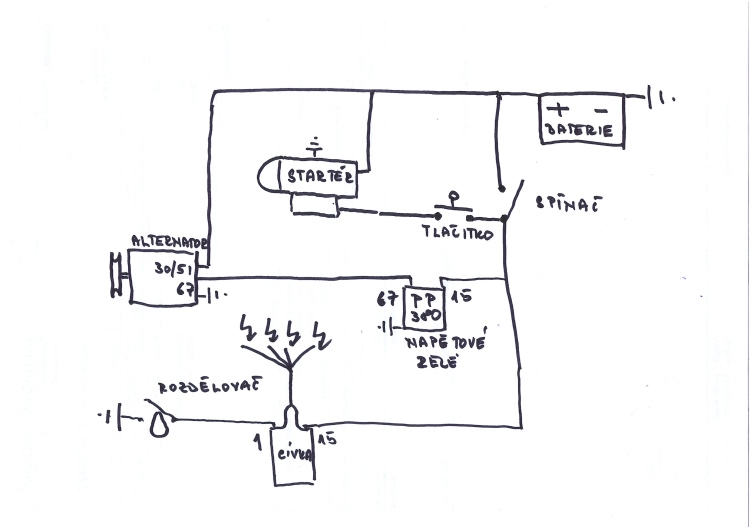 + -
BATERIE
STARTÉR
SPÍNAČ
TLAČITKO
ALTERNATOR
30/51
67
67
PP
380
15
NAPĚTOVÉ
RELÉ
ROZDĚLOVAČ
1
15
CÍVKA